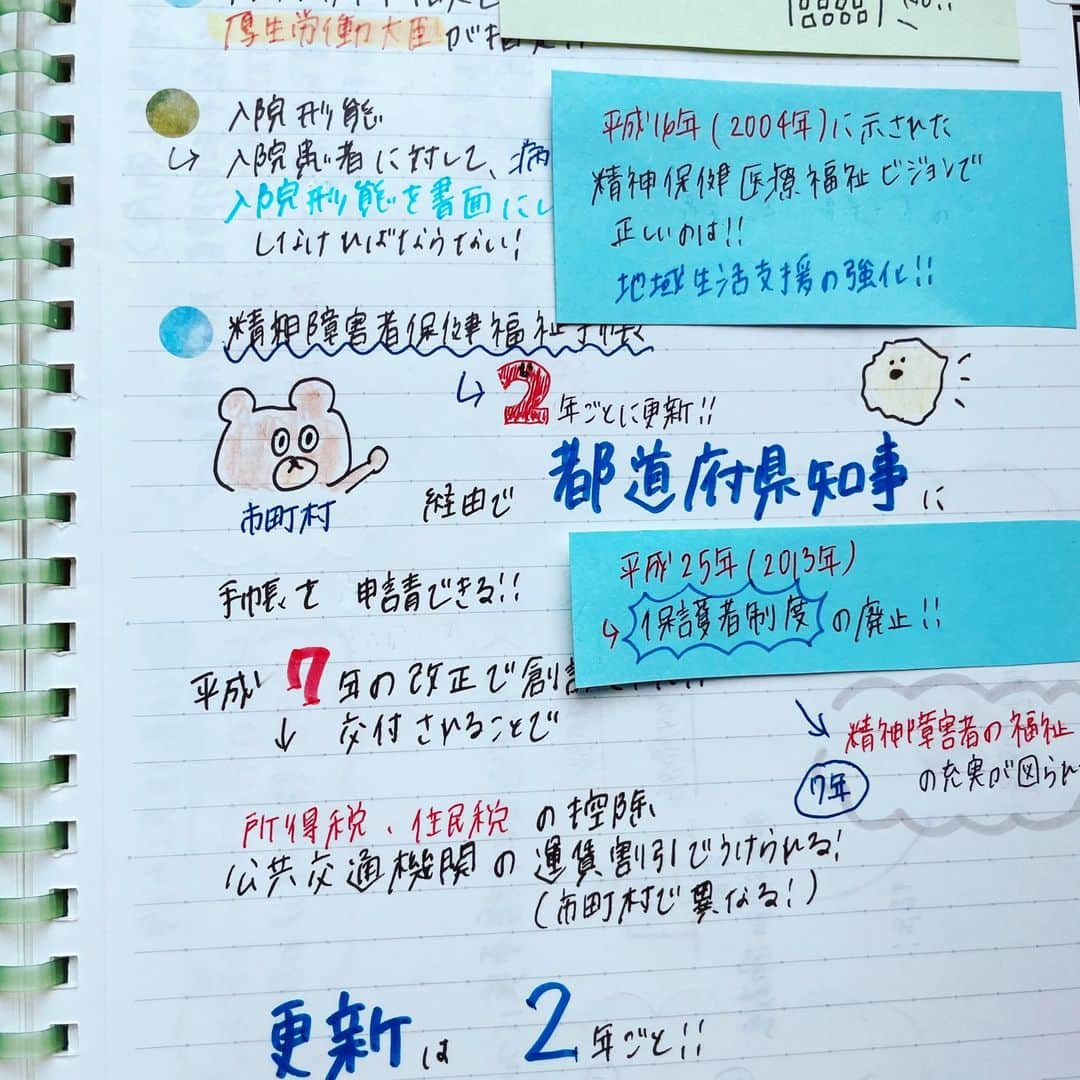 厚生労働大臣が指定!!
入院形態
↳ 入院患者に対して、病
入院形態を書面にし
しなければならない!
平成16年(2004年)に示された
精神保健医療福祉ビジョンで
正しいのは!!
地域生活支援の強化!!
精神障害者保健福祉手帳
↳ 2年ごとに更新!!
市町村 経由で 都道府県知事に
手帳を 申請できる!!
平成25年(2013年)
↳ 保護者制度の廃止!!
平成7年の改正で創設
↓ 交付されることで
↘ 精神障害者の福祉
7年 の充実が図られ
所得税、住民税の控除
公共交通機関の運賃割引でうけられる!
(市町村で異なる!)
更新は 2年ごと!!